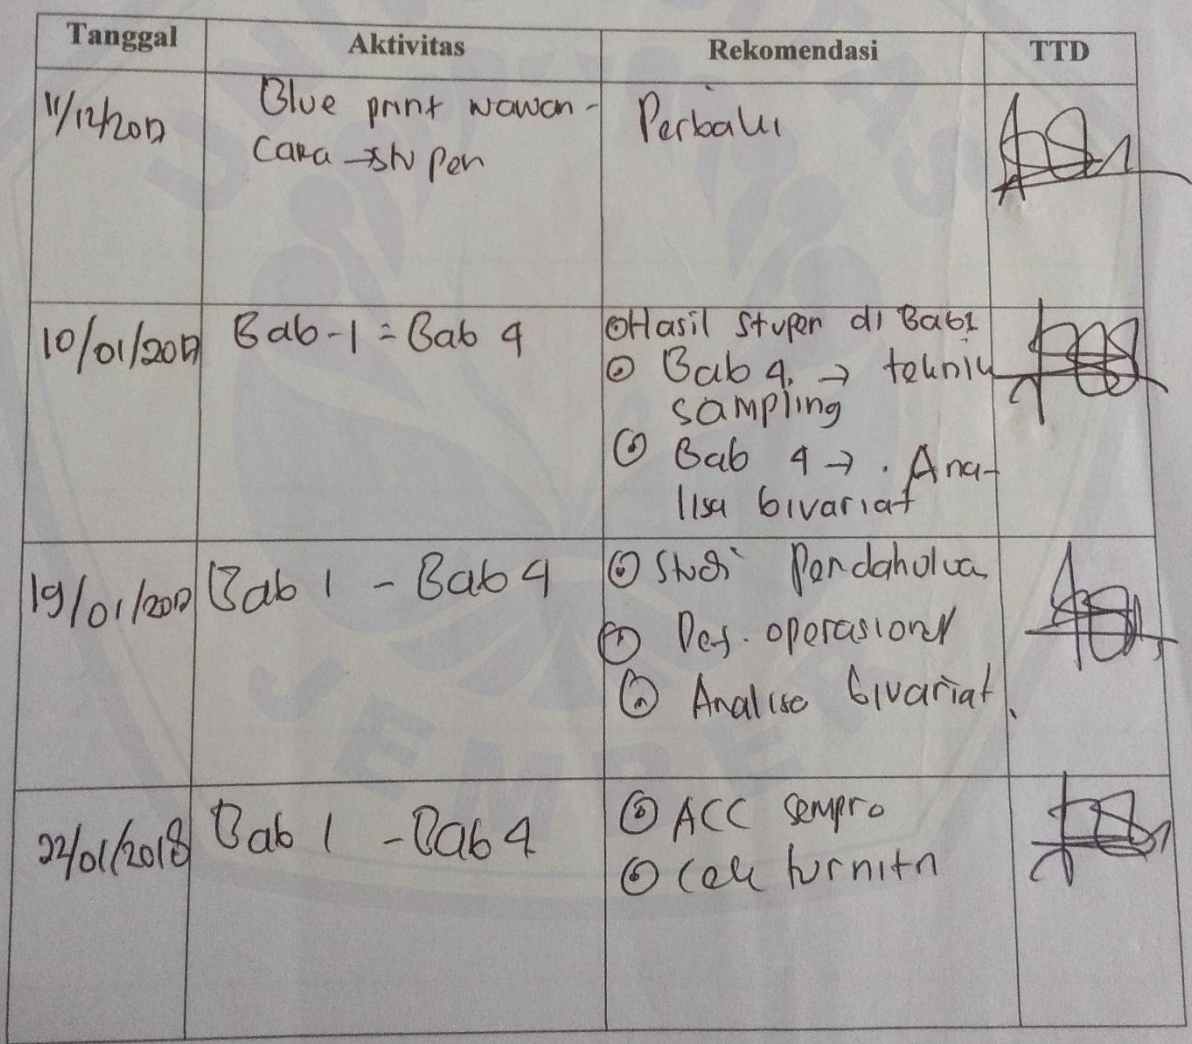 Tanggal Aktivitas Rekomendasi TTD
11/12/2017 Blue print wawan- Perbaiki
cara → stupen
10/01/2017 Bab-1 = Bab 4 Hasil Stupen di Bab 1
Bab 4. → teknik
sampling
Bab 4 → . Ana-
lisa bivariat
19/01/2017 Bab 1 - Bab 4 Studi Pendahulua
Def. operasional
Analisa bivariat.
22/01/2018 Bab 1 - Bab 4 ACC sempro
cek turnitn
JEMBER